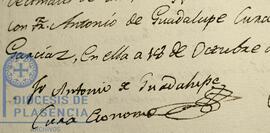 con Fr. Antonio de Guadalupe Cura
Garciaz, En ella a 18 de Octubre d
Fr Antonio de Guadalupe
Cura Economo
DIÓCESIS DE
PLASENCIA